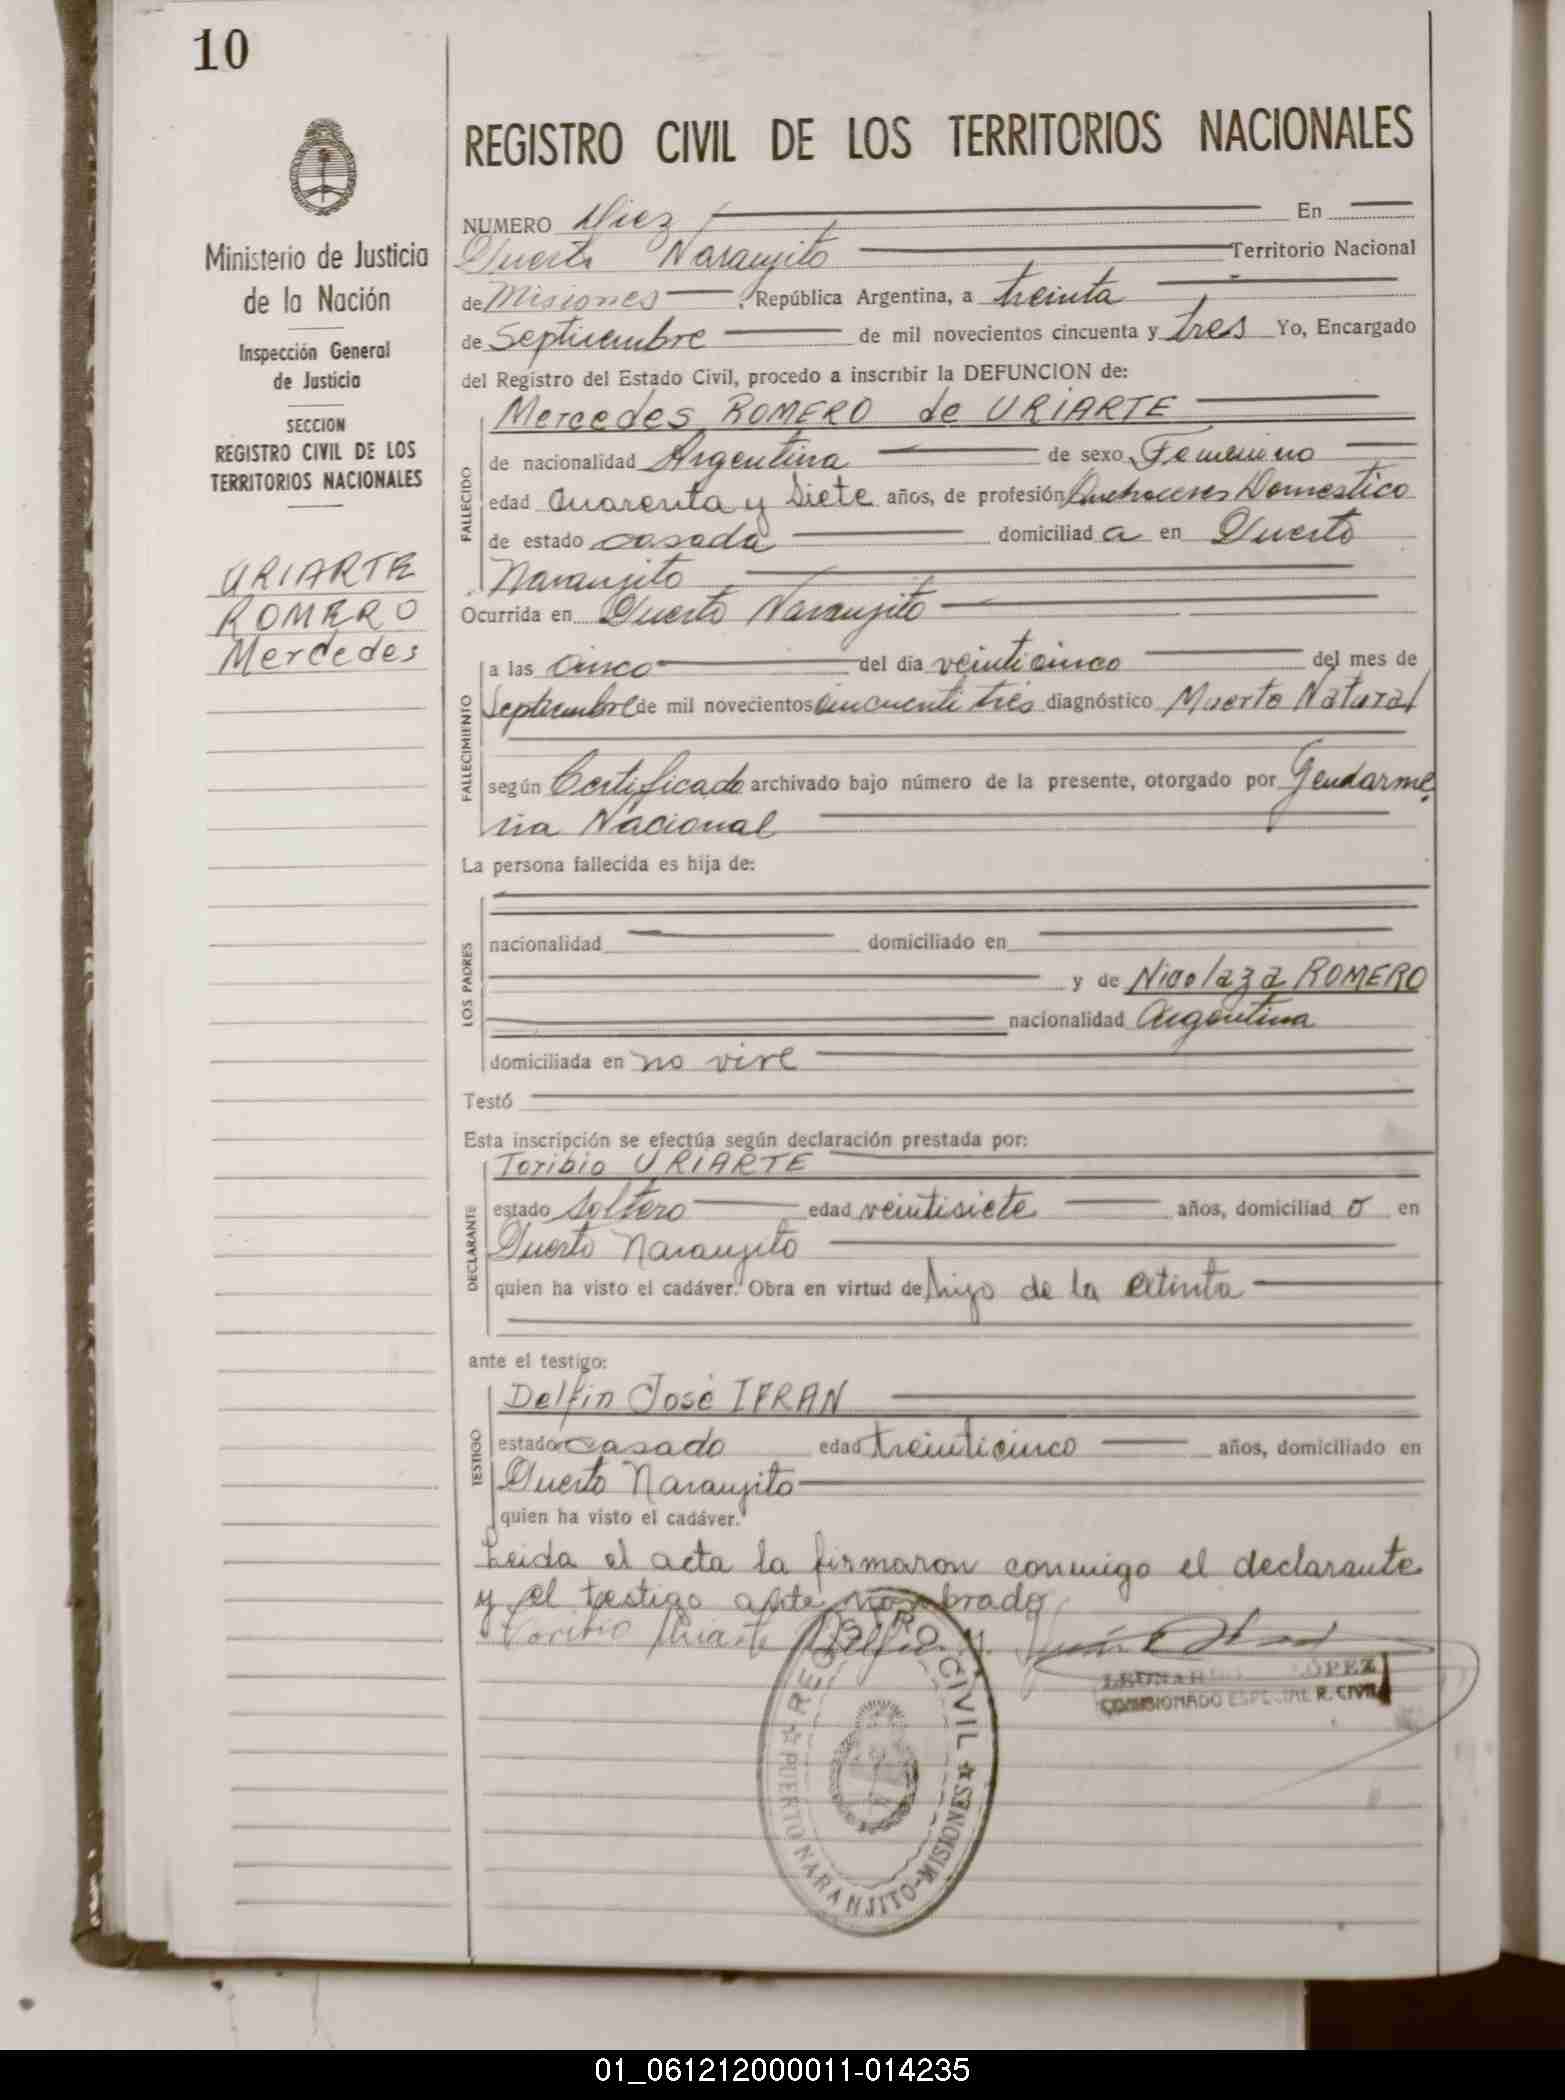 10
REGISTRO CIVIL DE LOS TERRITORIOS NACIONALES
Ministerio de Justicia
de la Nación
Inspección General
de Justicia
SECCION
REGISTRO CIVIL DE LOS
TERRITORIOS NACIONALES
URIARTE
ROMERO
Mercedes
NUMERO Diez En
Puerto Naranjito Territorio Nacional
de Misiones, República Argentina, a treinta
de Septiembre de mil novecientos cincuenta y tres Yo, Encargado
del Registro del Estado Civil, procedo a inscribir la DEFUNCION de:
Mercedes ROMERO de URIARTE
FALLECIDO
de nacionalidad Argentina de sexo Femenino
edad Cuarenta y Siete años, de profesión Domestico
de estado casada domiciliad a en Puerto
Naranjito
Ocurrida en Puerto Naranjito
FALLECIMIENTO
a las Cinco del día veinticinco del mes de
Septiembre de mil novecientos cincuenti tres diagnóstico Muerto Natural
según Certificado archivado bajo número de la presente, otorgado por Gendarme
ria Nacional
La persona fallecida es hija de:
LOS PADRES
nacionalidad domiciliado en
y de Nicolaza ROMERO
nacionalidad Argentina
domiciliada en no vive
Testó
Esta inscripción se efectúa según declaración prestada por:
DECLARANTE
Toribio URIARTE
estado Soltero edad veintisiete años, domiciliad o en
Puerto Naranjito
quien ha visto el cadáver. Obra en virtud de hijo de la extinta
ante el testigo:
TESTIGO
Delfin José IFRAN
estado casado edad treinticinco años, domiciliado en
Puerto Naranjito
quien ha visto el cadáver.
Leida el acta la firmaron conmigo el declarante
y el testigo ante nombrado
Toribio Uriarte
LEONAR LÓPEZ
COMISIONADO ESPECIAL R. CIVIL
REGISTRO CIVIL
PUERTO NARANJITO-MISIONES
01_061212000011-014235